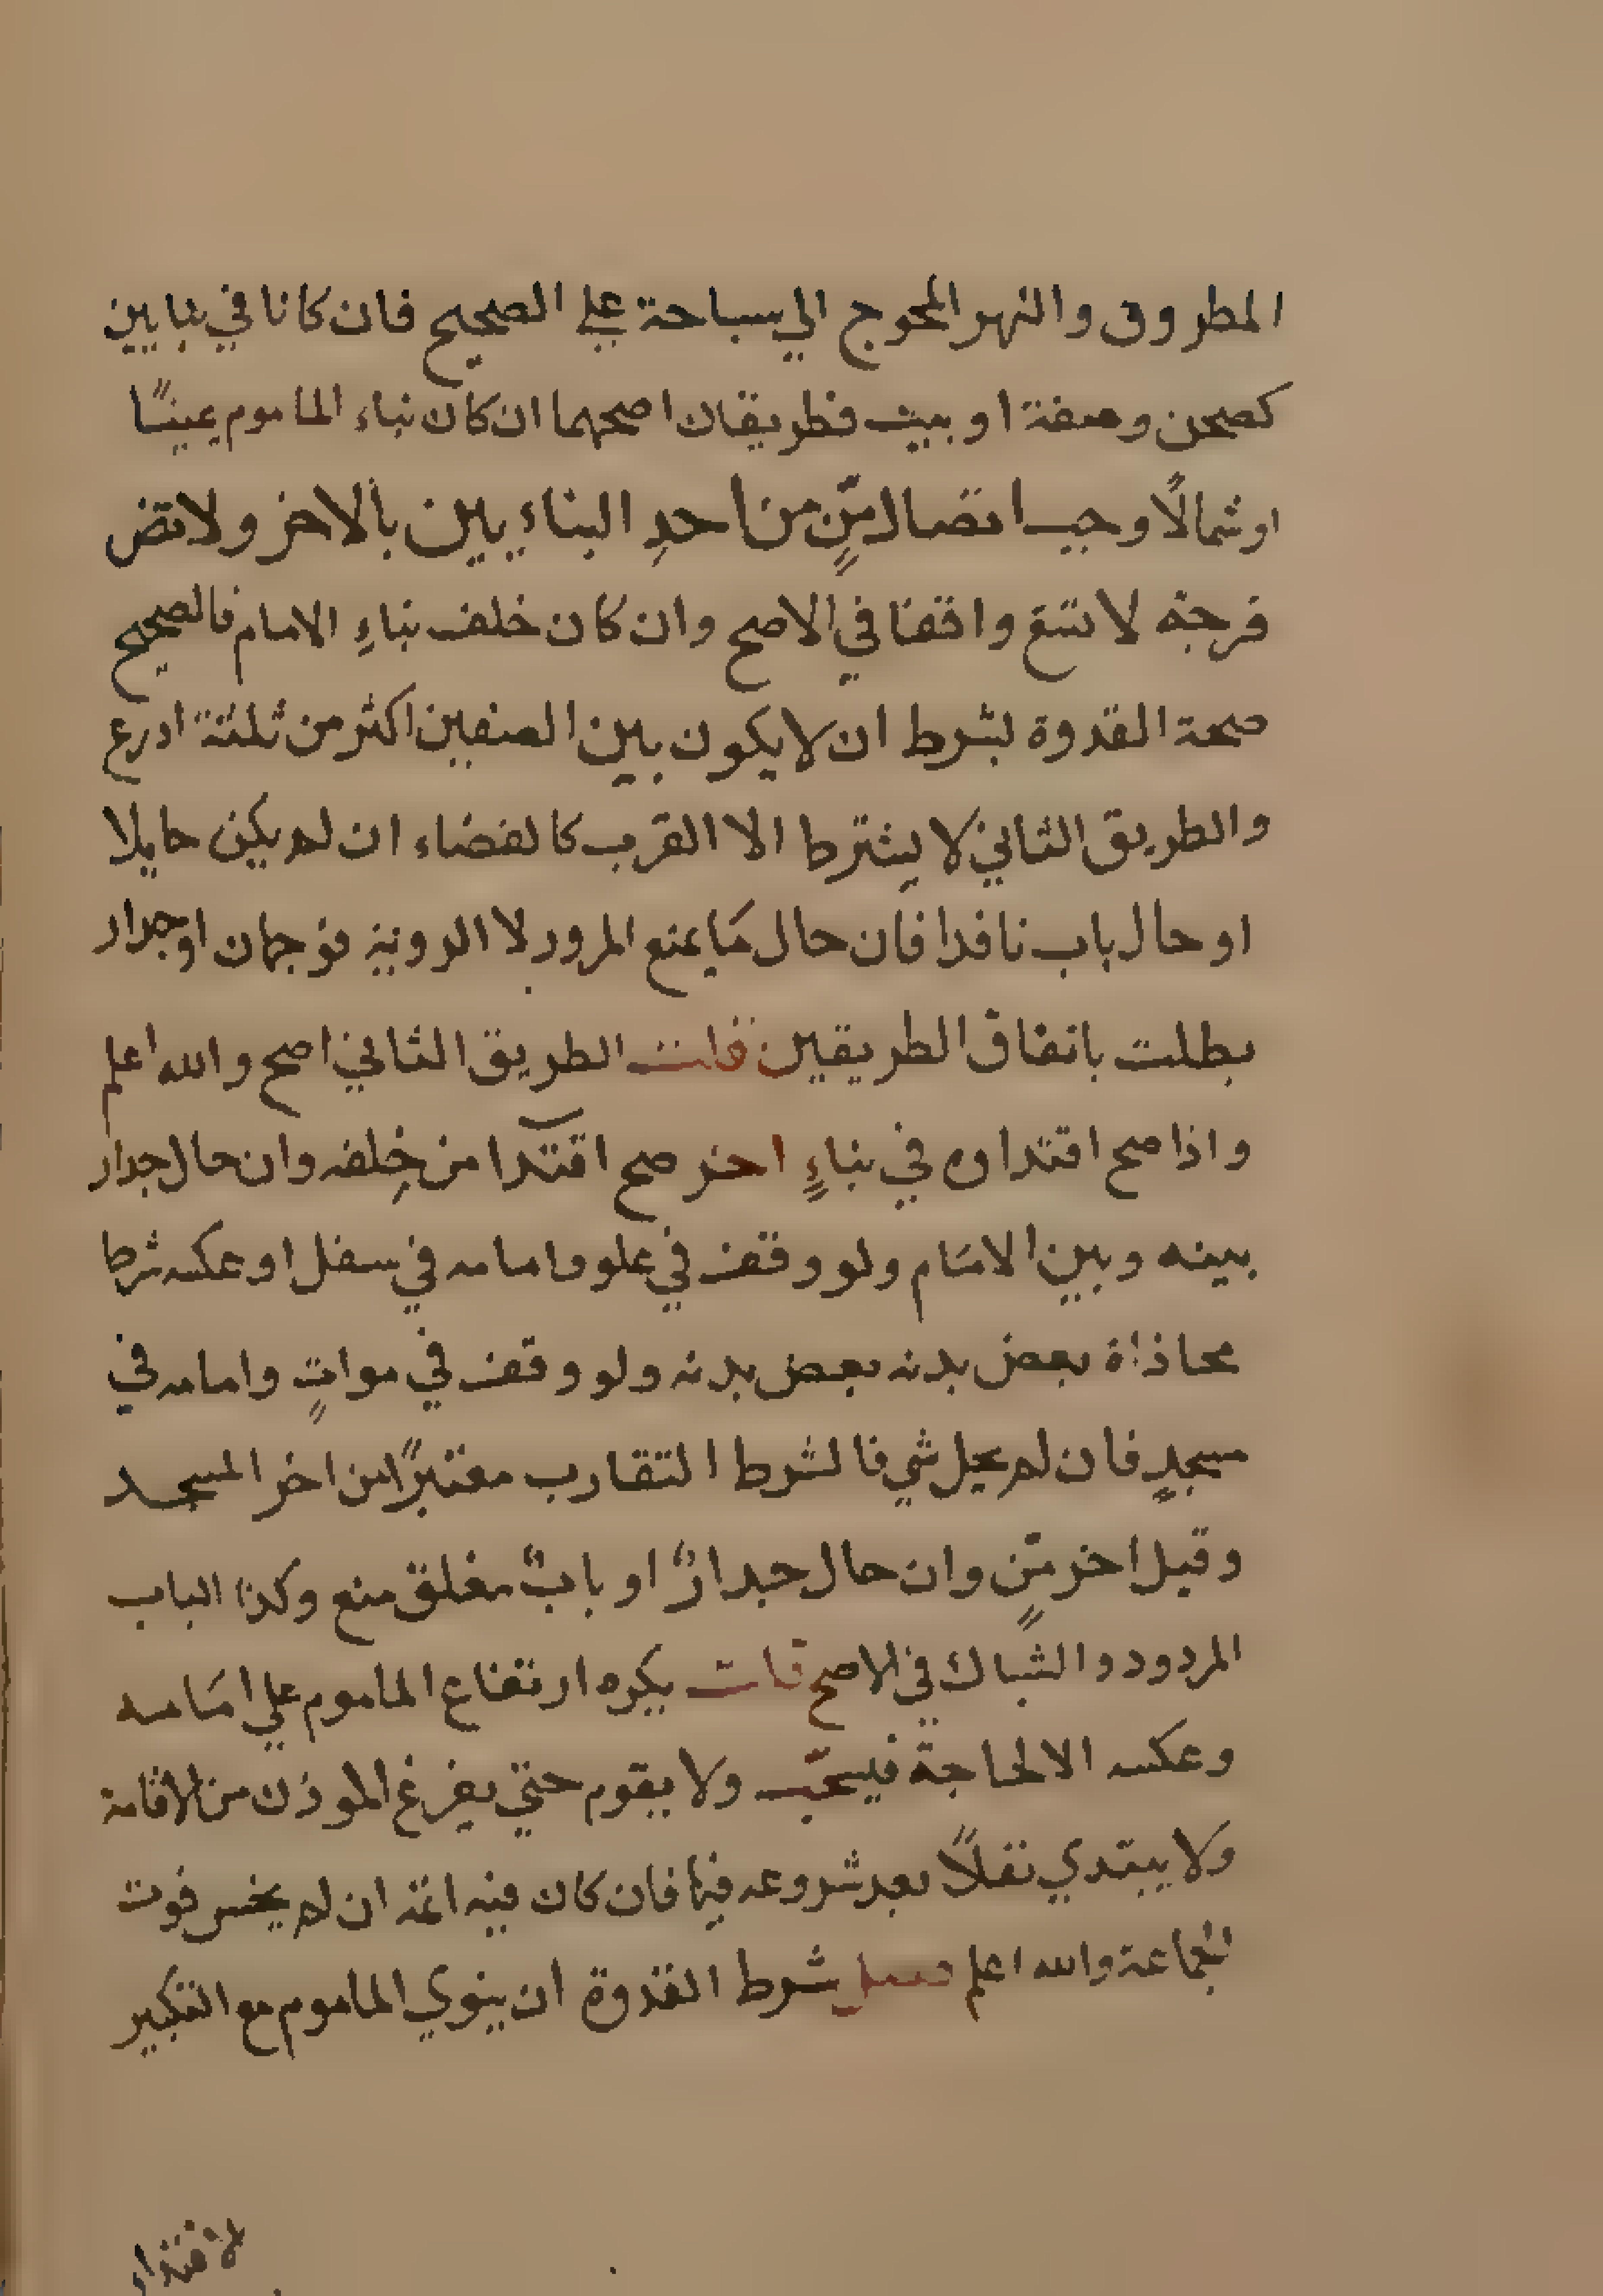 المطروق والنهر المحوج الي سباحة علي الصحيح فان كانا في بنايين
كصحن وصفة او بيت فطريقان اصحهما ان كان بناء الماموم يمينًا
او شمالًا وجب اتصال متنٍ من احدِ البناءِ يين بالاخر ولا تضر
فرجة لا تسع واقفا في الاصح وان كان خلف بناءِ الامام فالصحيح
صحة القدوة بشرط ان لا يكون بين الصفين اكثر من ثلثة اذرع
والطريق الثاني لا يشترط الا القرب كالفضاء ان لم يكن حايلا
او حال باب نافذا فان حال مَا يمنع المرور لا الروية فوجهان او جدار
بطلت باتفاق الطريقين قلت الطريق الثاني اصح والله اعلم
واذا صح اقتداوه في بناءٍ اخر صح اقتدا من خِلفه وان حال جدار
بينه وبين الامَام ولو وقف في علو وامامه في سفل او عكسه شرط
محاذاة بعض بدنه بعض بدنه ولو وقف في مواتٍ وامامه في
مسجدٍ فان لم يحل شي فالشرط التقارب معتبرًا من اخر المسجد
وقيل اخر متنٍ وان حال جدارٌ او بابٌ مغلق منع وكذا الباب
المردود والشباك في الاصح قلت يكره ارتفاع الماموم علي امَامه
وعكسه الا لحاجة فيستحب ولا يقوم حتي يفرغ الموذن من الاقامة
ولا يبتدي نفلًا بعد شروعه فيها فان كان فيه اتمه ان لم يخش فوت
الجماعة والله اعلم فصل شرط القدوة ان ينوي الماموم مع التكبير
لاقتدا